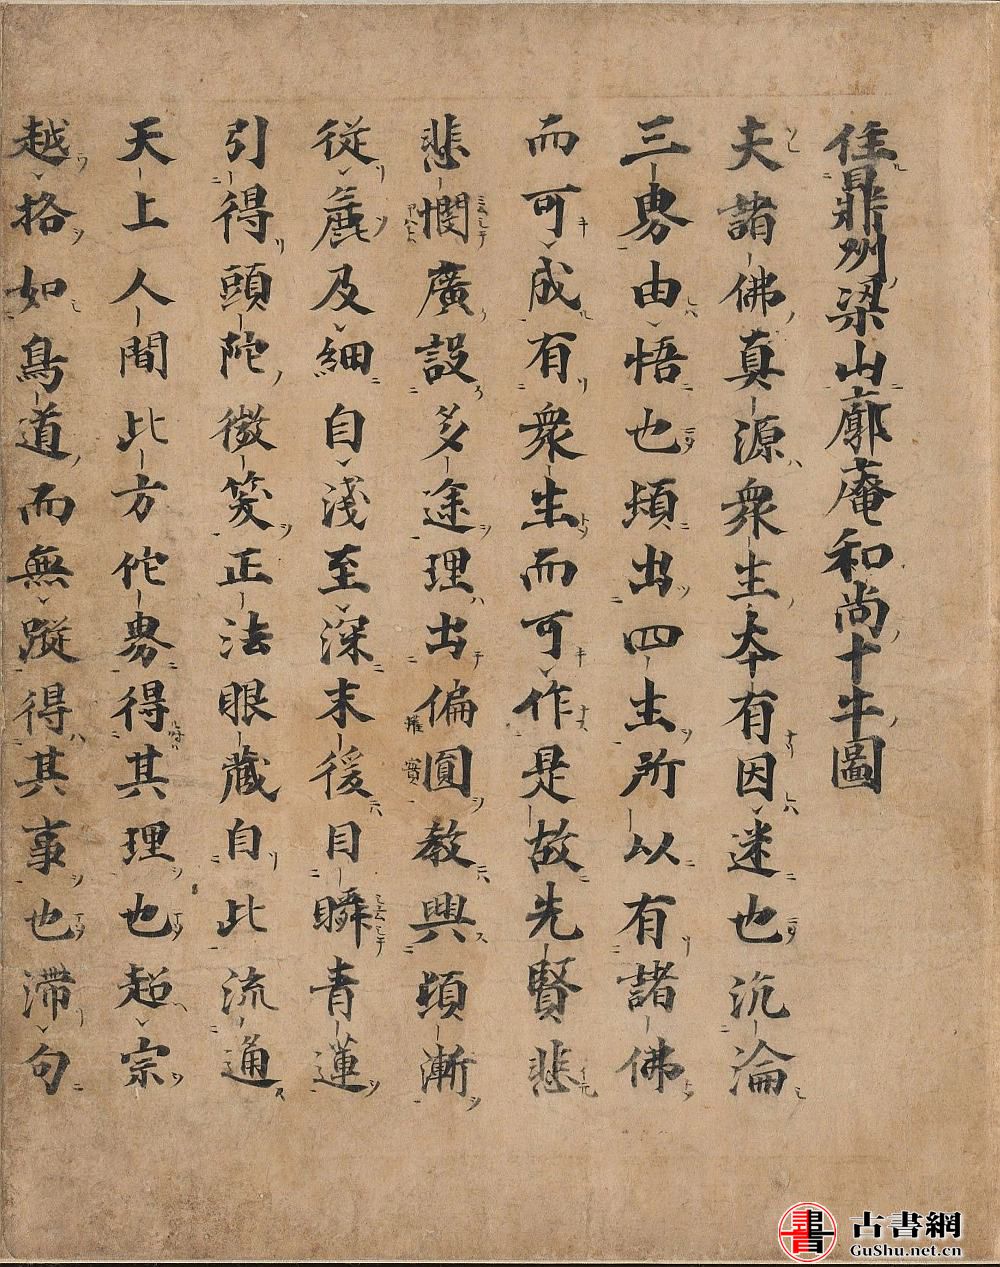 住鼎州梁山廓庵和尚十牛圖
夫諸佛真源衆生本有因迷也沉淪
三界由悟也頓出四生所以有諸佛
而可成有衆生而可作是故先賢悲
悲憫廣設多途理出偏圓教興頓漸
從麁及細自淺至深末後目瞬青蓮
引得頭陀微笑正法眼藏自此流通
天上人間此方佗界得其理也超宗
越格如鳥道而無蹤得其事也滯句
古書網
GuShu.net.cn